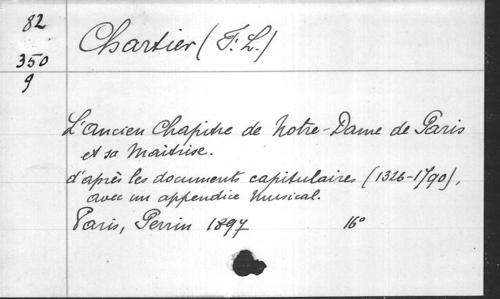 82
350
9
Chartier (F. L.)
L'Ancien Chapitre de Notre-Dame de Paris
et sa Maîtrise.
d'après les documents capitulaires (1326-1790),
avec un appendice musical.
Paris, Perrin 1897 16°